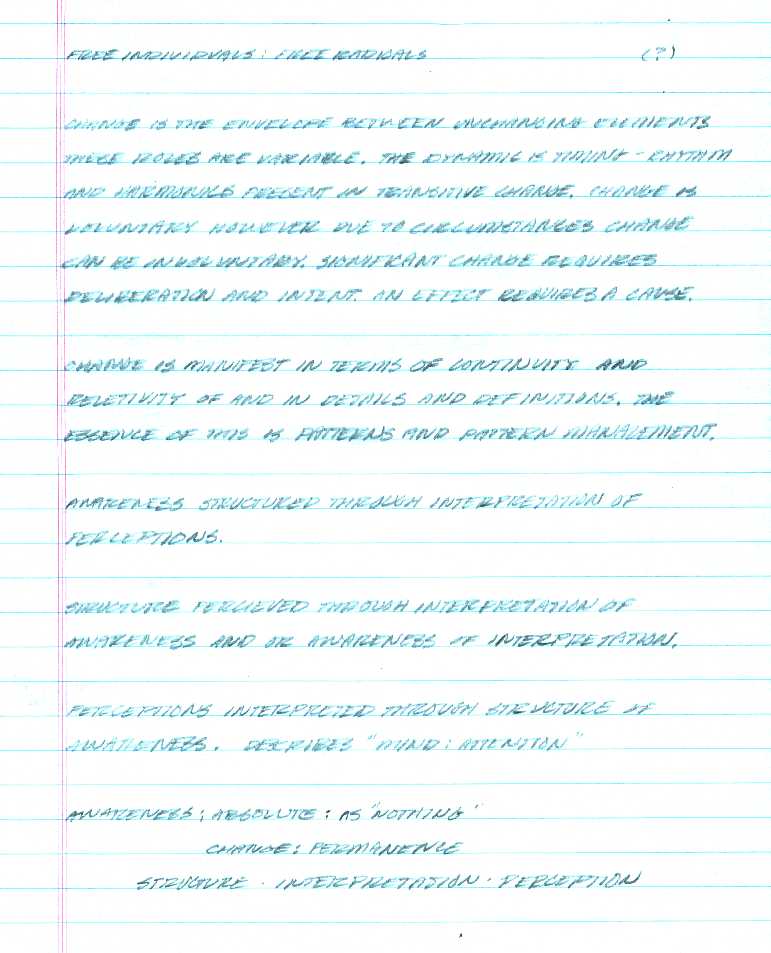 FREE INDIVIDUALS : FREE RADICALS (?)
CHANGE IS THE ENVELOPE BETWEEN UNCHANGING ELEMENTS
THESE ROLES ARE VARIABLE. THE DYNAMIC IS TIMING - RHYTHM
AND HARMONICS PRESENT IN TRANSITIVE CHANGE. CHANGE IS
VOLUNTARY HOWEVER DUE TO CIRCUMSTANCES CHANGE
CAN BE INVOLUNTARY. SIGNIFICANT CHANGE REQUIRES
DELIBERATION AND INTENT. AN EFFECT REQUIRES A CAUSE.
CHANGE IS MANIFEST IN TERMS OF CONTINUITY AND
RELETIVITY OF AND IN DETAILS AND DEFINITIONS. THE
ESSENCE OF THIS IS PATTERNS AND PATTERN MANAGEMENT.
AWARENESS STRUCTURED THROUGH INTERPRETATION OF
PERCEPTIONS.
STRUCTURE PERCIEVED THROUGH INTERPRETATION OF
AWARENESS AND OR AWARENESS OF INTERPRETATION.
PERCEPTIONS INTERPRETED THROUGH STRUCTURE OF
AWARENESS. DESCRIBES "MIND : ATTENTION"
AWARENESS ; ABSOLUTE : AS "NOTHING"
CHANGE : PERMANENCE
STRUCTURE · INTERPRETATION · PERCEPTION